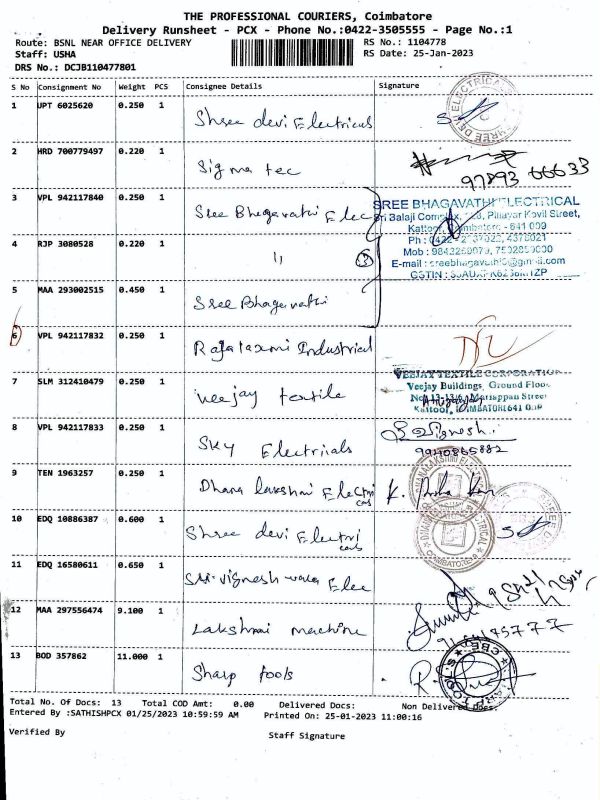 THE PROFESSIONAL COURIERS, Coimbatore
Delivery Runsheet - PCX - Phone No.:0422-3505555 - Page No.:1
Route: BSNL NEAR OFFICE DELIVERY
RS No.: 1104778
Staff: USHA
RS Date: 25-Jan-2023
DRS No.: DCJB110477801
S No Consignment No Weight PCS Consignee Details Signature
1 UPT 6025620 0.250 1 Shree devi Electricals
2 HRD 700779497 0.220 1 Sigma tec
97893 66633
3 VPL 942117840 0.250 1 Sree Bhagavathi Elec
SREE BHAGAVATHI ELECTRICAL
Sri Balaji Complex, Pillayar Kovil Street,
Kattoor, Coimbatore - 641 009
4 RJP 3080528 0.220 1 11 3
Ph : 0422 -
Mob :
E-mail :
GSTIN :
5 MAA 293002515 0.450 1 Sree Bhagavathi
6 VPL 942117832 0.250 1 Rajalaxmi Industrical
7 SLM 312410479 0.250 1 Veejay textile
VEEJAY TEXTILE CORPORATION
Veejay Buildings, Ground Floor
Mariappan Street
Kattoor, COIMBATORE 641 009
8 VPL 942117833 0.250 1 Sky Electrials
9940865882
9 TEN 1963257 0.250 1 Dhana lakshmi Electricals
DHANALAKSHMI ELECTRICALS
10 EDQ 10886387 0.600 1 Shree devi Electricals
COIMBATORE
11 EDQ 16580611 0.650 1 Sri vigneshwara Elec
12 MAA 297556474 9.100 1 Lakshmi machine
13 BOD 357862 11.000 1 Sharp tools
Total No. Of Docs: 13 Total COD Amt: 0.00 Delivered Docs: Non Delivered Docs:
Entered By :SATHISHPCX 01/25/2023 10:59:59 AM Printed On: 25-01-2023 11:00:16
Verified By Staff Signature